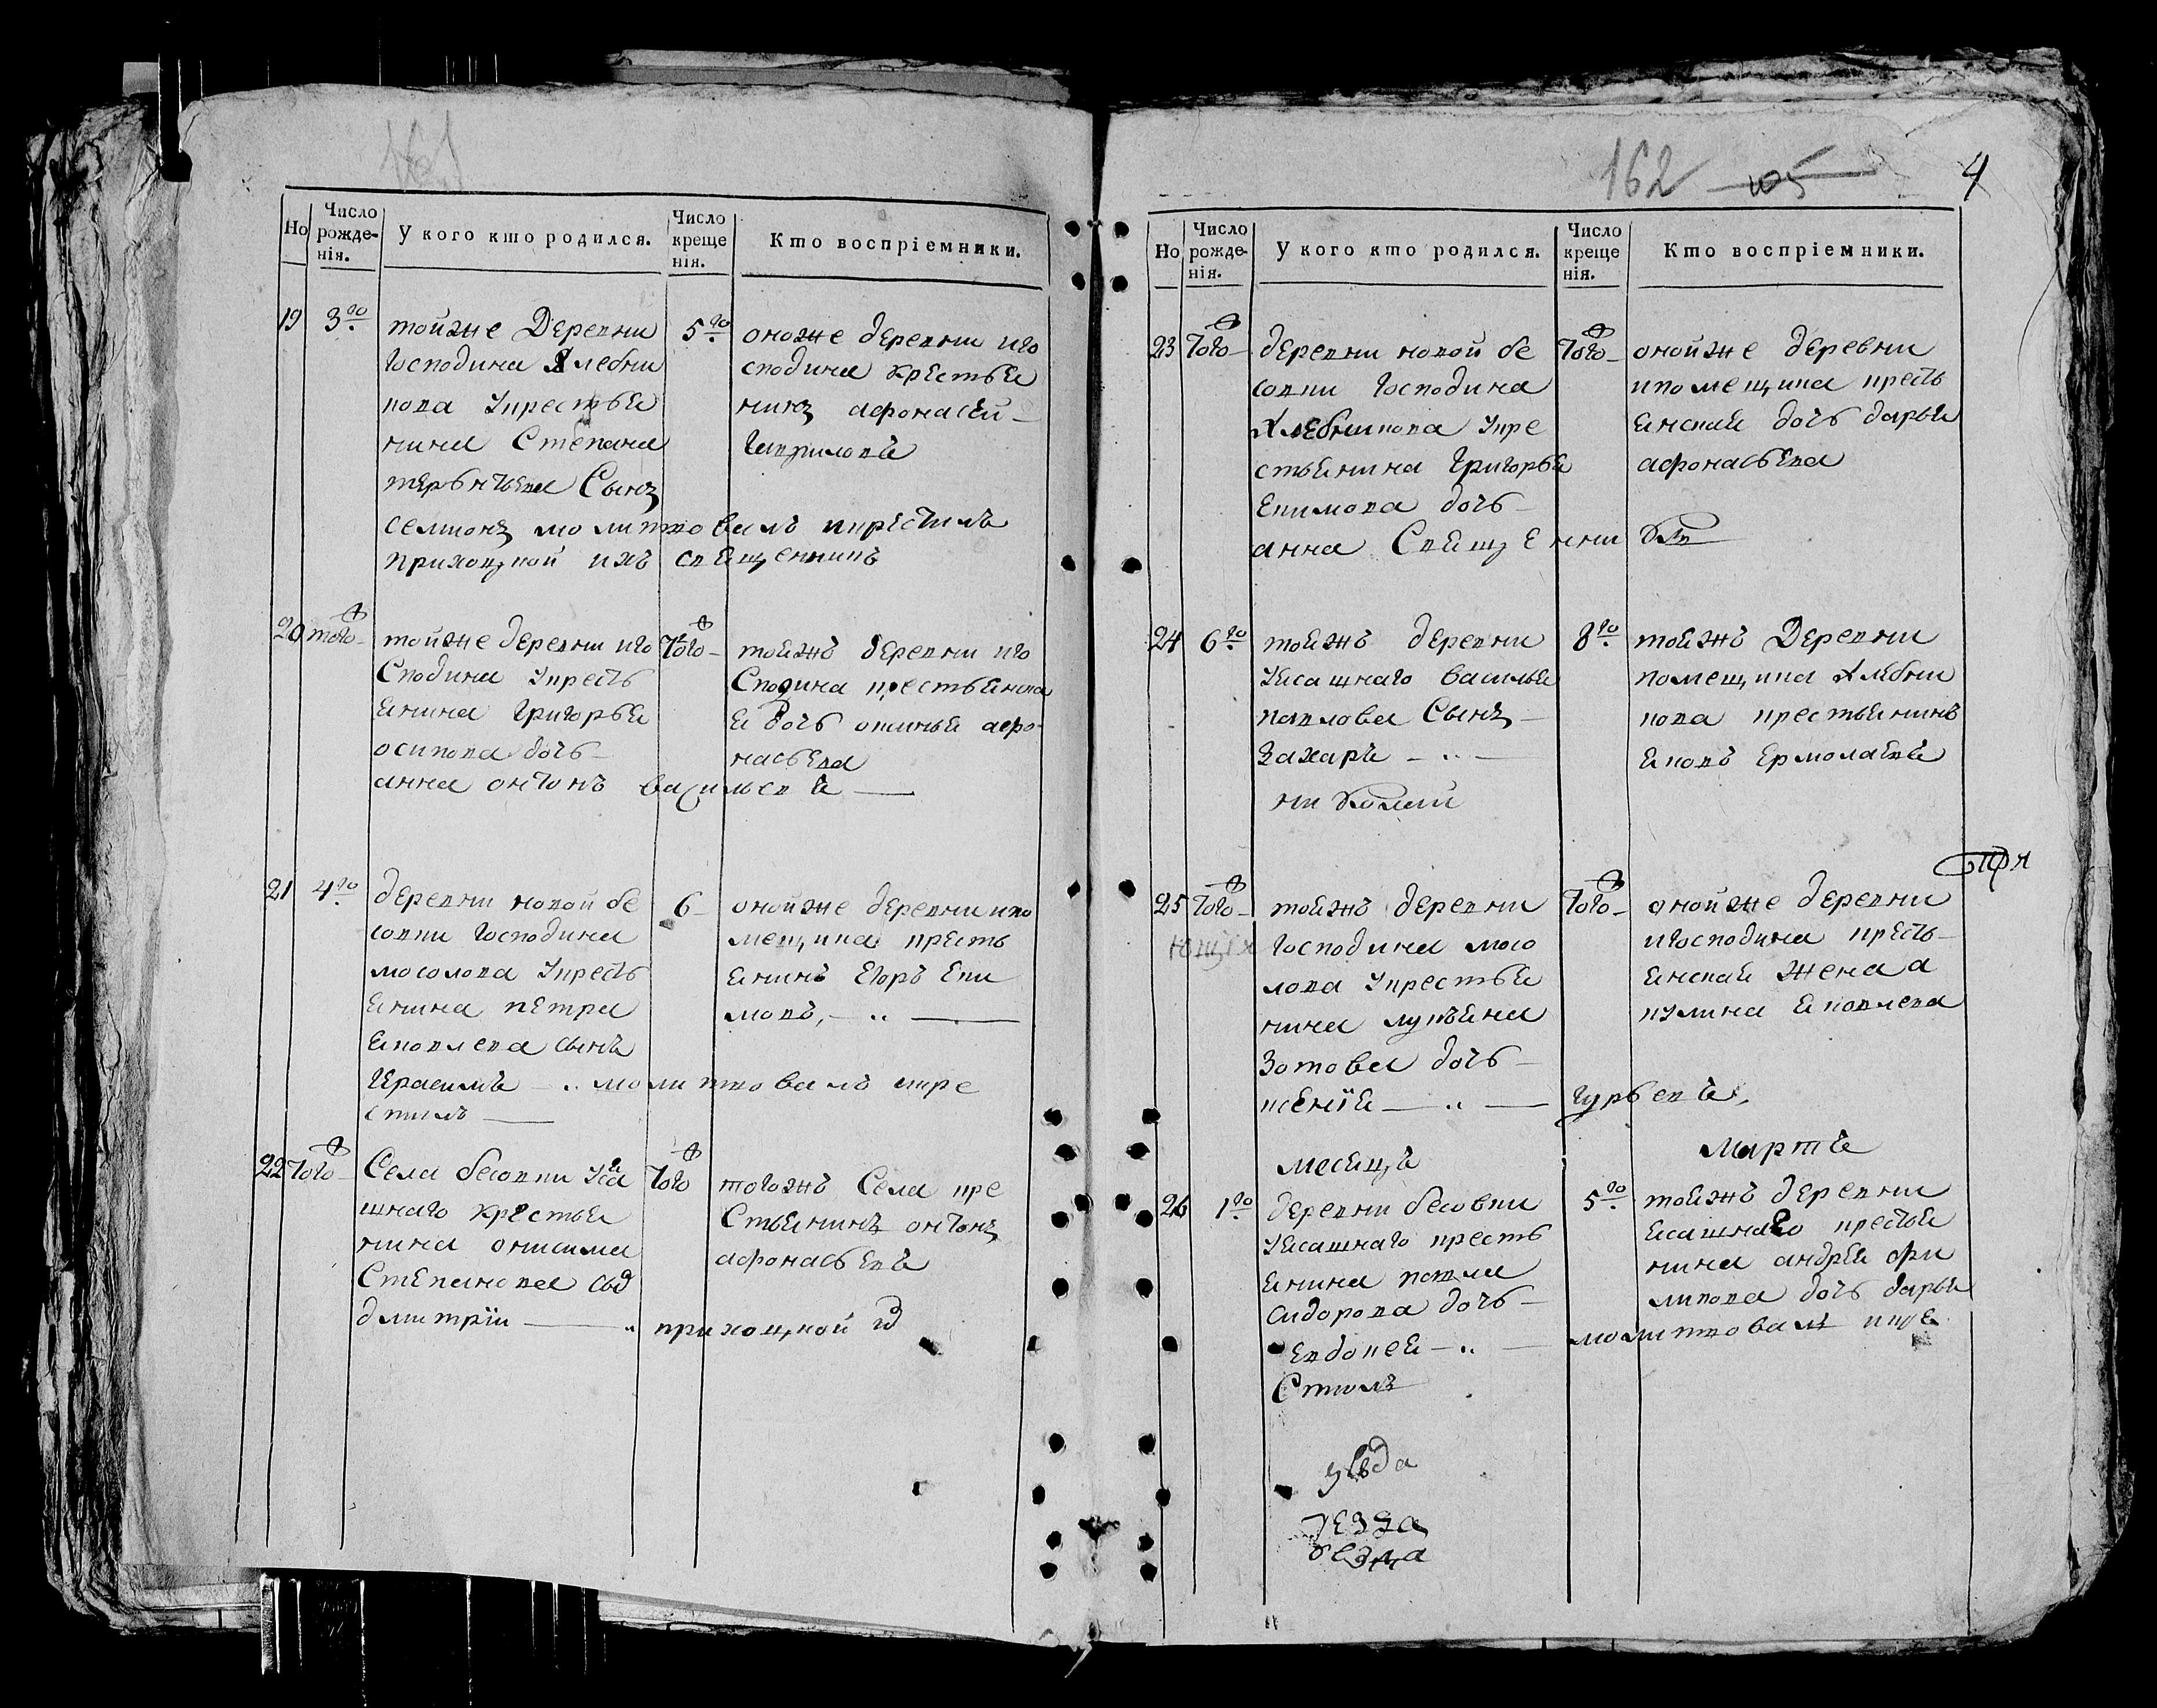 161
Но
Число рожде- нія.
У кого кто родился.
Число креще нія.
Кто воспріемники.
19
3го
тойже деревни
Господина хлебни
кова укрестья
нина Степана
терентьева Сынъ
семионъ молитвовалъ икрестилъ
приходцкой ихъ священникъ
5го
оноже деревни иго
сподина крестья
нинъ афонасей
гавриловъ
20
того
тойже деревни иго
Сподина укресть
янина григорья
осипова дочь
анна онтонъ васильевъ
того
тояжъ деревни иго
Сподина крестьянска
я дочь опинья афо
насьева
21
4го
деревни новой бе
совки господина
мосолова укресть
янина петра
яковлева сынъ
герасимъ молитвовалъ икре
стилъ
6
онойже деревни ипо
мещика кресть
янинъ егоръ еки
мовъ
22
того
Села бесовки уяса
шнаго крестья
нина онисима
Степанова сы
дмитріи
приходцкой
того
тогожъ Села кре
Стьянинъ онтонъ
афонасьевъ
162
105
4
Но
Число рожде- нія.
У кого кто родился.
Число креще нія.
Кто воспріемники.
23
того
деревни новой бе
совки господина
хлебникова укре
стьянина григорья
екимова дочь
анна Священни
того
онойже деревни
ипомещика кресть
янская дочь дарья
афонасьева
24
6го
тояжъ деревни
уясашнаго василья
павлова Сынъ
захаръ
николай
8го
тояжъ деревни
помещика хлебни
кова крестьянинъ
яковъ ермолаевъ
25
того
тояжъ деревни
господина мосо
лова укрестья
нина лукьяна
зотова дочь
ксенія
гурьевъ
того
онойже деревни
игосподина кресть
янская жена а
кулина яковлева
месяцъ
мартъ
26
1го
деревни бесовки
уясашнаго кресть
янина павла
сидорова дочь
евдокея
молитвовалъ икре
Стилъ
5го
тояжъ деревни
ясашнаго крестья
нина андрея фи
липова дочь дарья
уезда